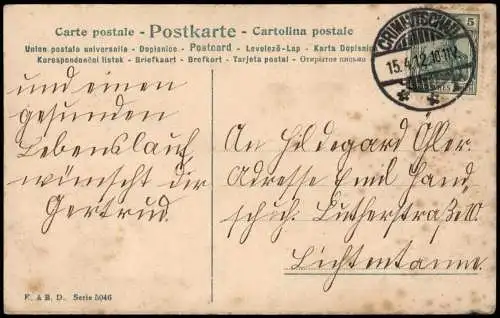 Carte postale - Postkarte - Cartolina postale
Union postale universelle - Dopisnice - Postcard - Levelező-Lap - Karta Dopisnica
Korespondenční lístek - Briefkaart - Brefkort - Tarjeta postal - Открытое письмо
5
CRIMMITSCHAU
15.4.12.10-11V.
und einen
gesunden
Lebenslauf
wünscht dir
Gertrud.
An Hildegard Öhler.
Adresse Emil Hand
schuh. Lutherstraße
Lichtentanne.
E. & B. D. Serie 5046